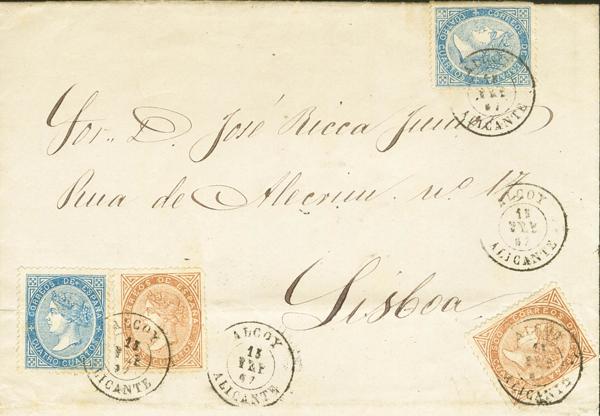 CORREOS DE ESPAÑA
CUATRO CUARTOS
ALICANTE
Sor. D. José Ricca Junior
Rua de Alecrim nº 17
ALCOY
ALICANTE
Lisboa
CORREOS DE ESPAÑA
CUATRO CUARTOS
CORREOS DE ESPAÑA
ALCOY
ALICANTE
ALCOY
ALICANTE
CORREOS DE
ALICANTE